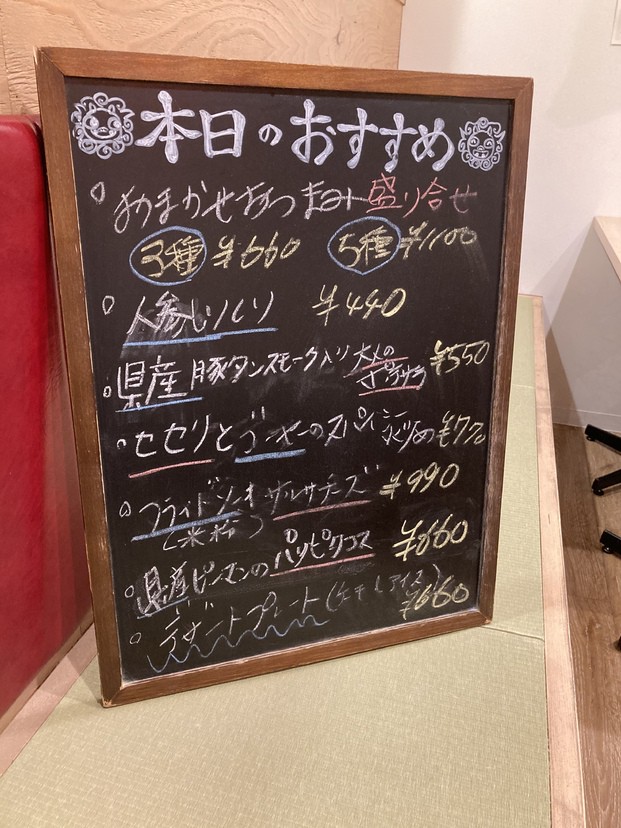 本日のおすすめ
おまかせおつまみ盛り合せ
3種 ¥660 5種 ¥1100
人参しりしり ¥440
県産豚タンスモーク入り大人のポテサラ ¥550
セセリとゴーヤーのスパイシー炒め ¥770
フライド サルサチーズ ¥990
(米粉)
県産ピーマンのパリピリコス ¥660
デザートプレート(ケーキ アイス) ¥660